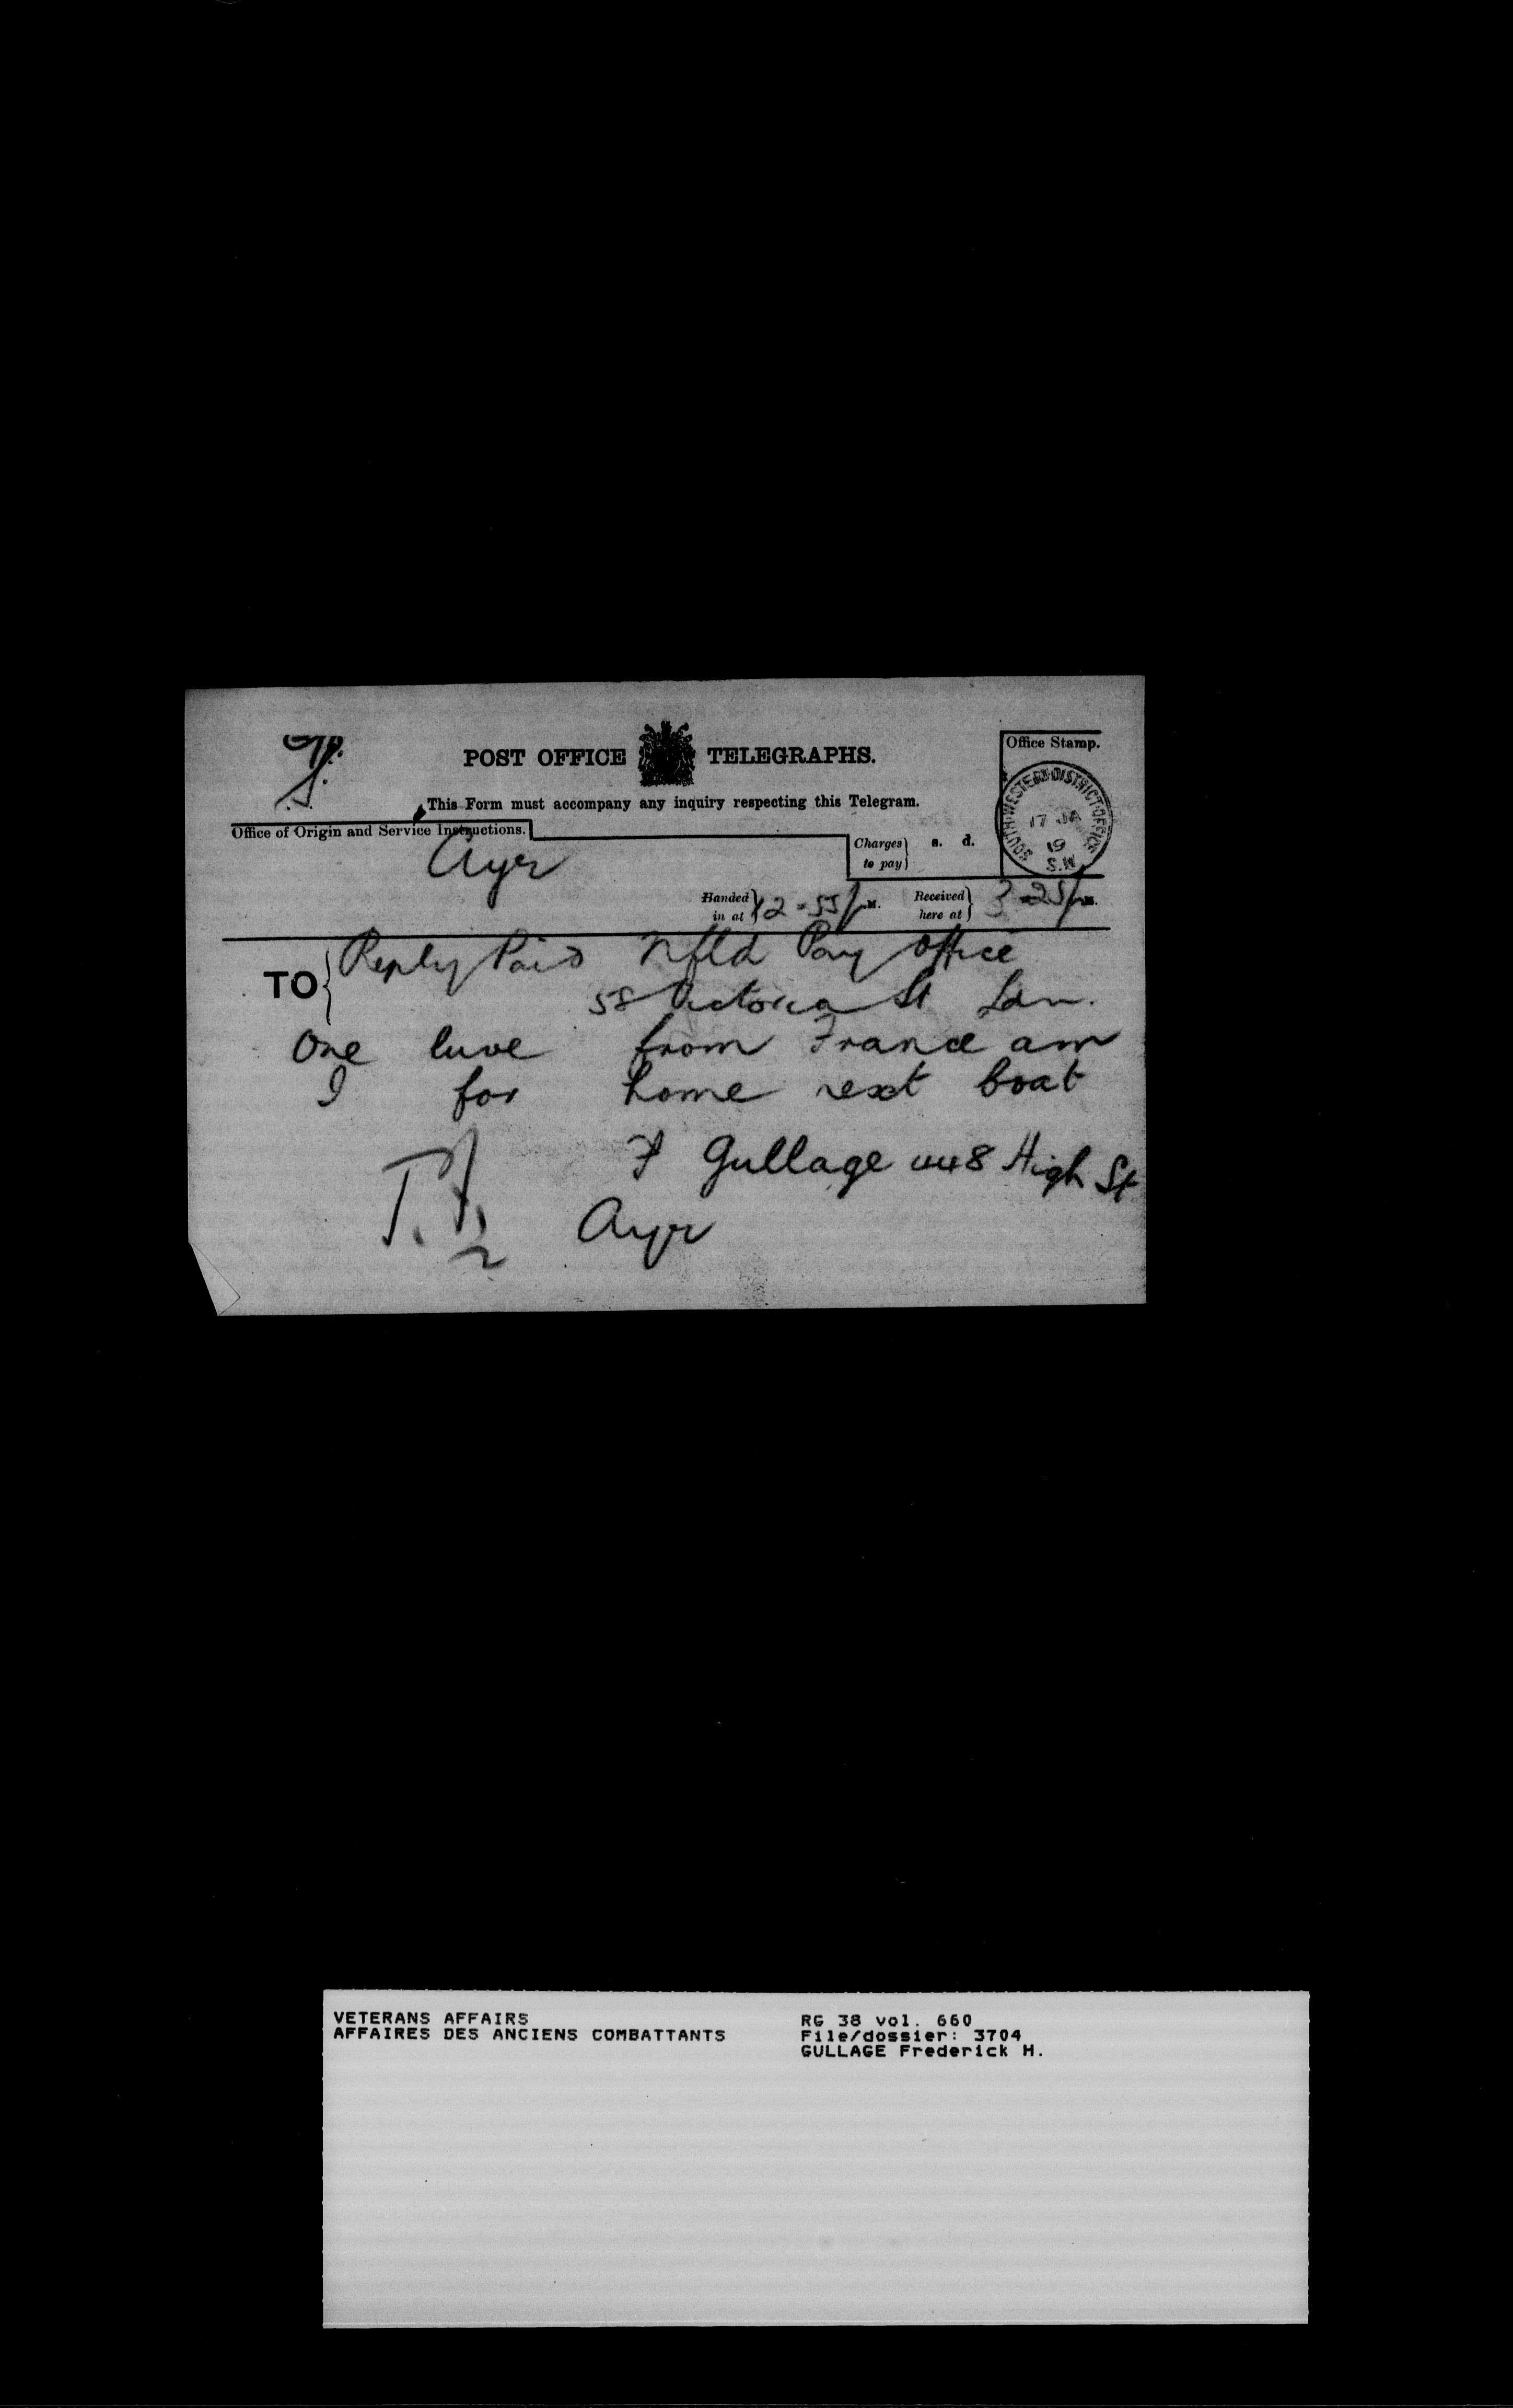 POST OFFICE TELEGRAPHS.
Office Stamp.
This Form must accompany any inquiry respecting this Telegram.
Office of Origin and Service Instructions.
SOUTH WESTERN DISTRICT OFFICE
17 JA
19
S.W
Ayr
Charges to pay s. d.
Handed in at 12-55 pm. Received here at 3-25 pm.
TO Reply Paid Nfld Pay Office
58 Victoria St Ldn.
One luve from France am
I for home next boat
F Gullage 448 High St
Ayr
VETERANS AFFAIRS
AFFAIRES DES ANCIENS COMBATTANTS
RG 38 vol. 660
File/dossier: 3704
GULLAGE Frederick H.